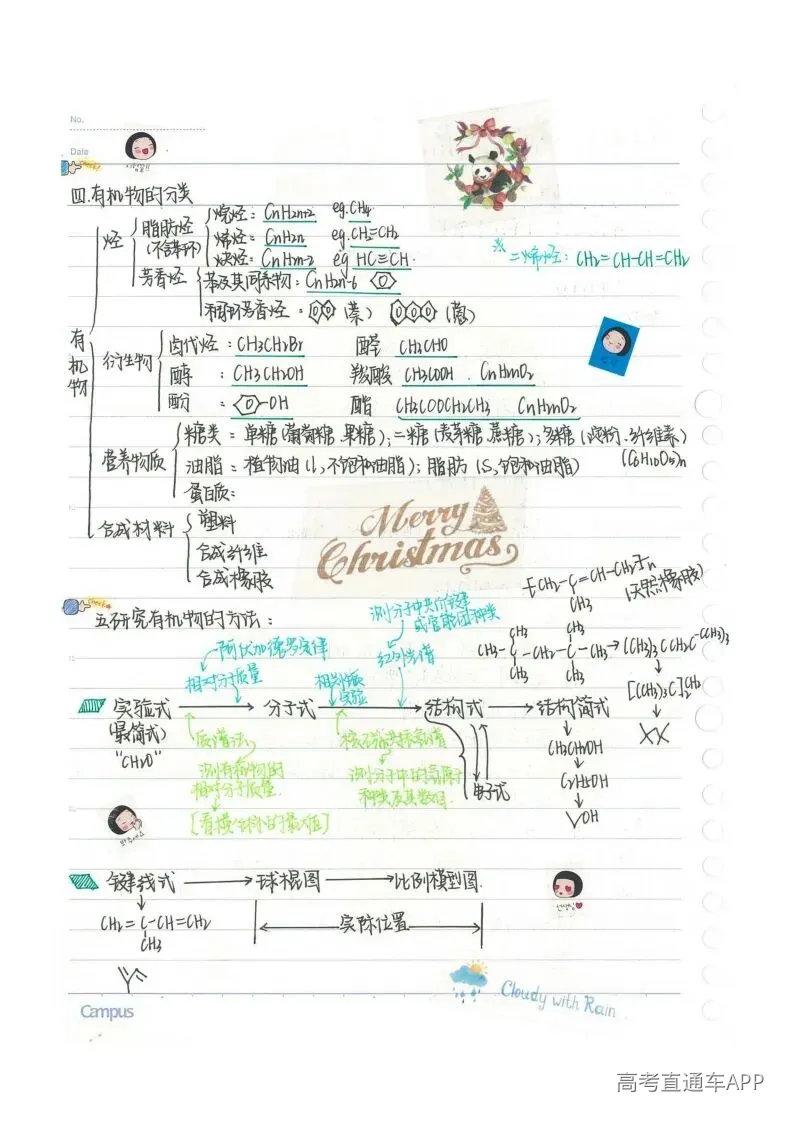 No.
Date
四.有机物的分类
有机物
烃
脂肪烃(不含苯环)
烷烃: CnH2n+2 eg.CH4
烯烃: CnH2n eg.CH2=CH2
炔烃: CnH2n-2 eg HC≡CH.
※二烯烃: CH2=CH-CH=CH2
芳香烃
苯及其同系物: CnH2n-6
稠环芳香烃: (萘) (蒽)
衍生物
卤代烃: CH3CH2Br 醛 CH3CHO
醇: CH3CH2OH 羧酸 CH3COOH. CnH2nO2
酚: -OH 酯 CH3COOCH2CH3 CnH2nO2
营养物质
糖类: 单糖(葡萄糖.果糖);二糖(麦芽糖.蔗糖);多糖(淀粉.纤维素)
(C6H10O5)n
油脂: 植物油(l,不饱和油脂);脂肪(s,饱和油脂)
蛋白质:
合成材料
塑料
合成纤维
合成橡胶
Merry Christmas
-[CH2-C=CH-CH2]-n
CH3
(天然橡胶)
五.研究有机物的方法:
阿伏加德罗定律
相对分子质量
测分子中共价键或官能团种类
红外光谱
实验式 → 分子式 → 结构式 → 结构简式
(最简式)
"CH2O"
质谱法
测有机物的相对分子质量.
[看横坐标的最大值]
核磁共振氢谱
测分子中的氢原子种类及其数目.
电子式
CH3 CH3
CH3-C-CH2-C-CH3 → (CH3)3CCH2C-(CH3)3
CH3 CH3
[(CH3)3C]2CH2
CH3CH2OH
C2H5OH
OH
键线式 → 球棍图 → 比例模型图.
CH2=C-CH=CH2
CH3
实际位置
Cloudy with Rain
Campus
高考直通车APP